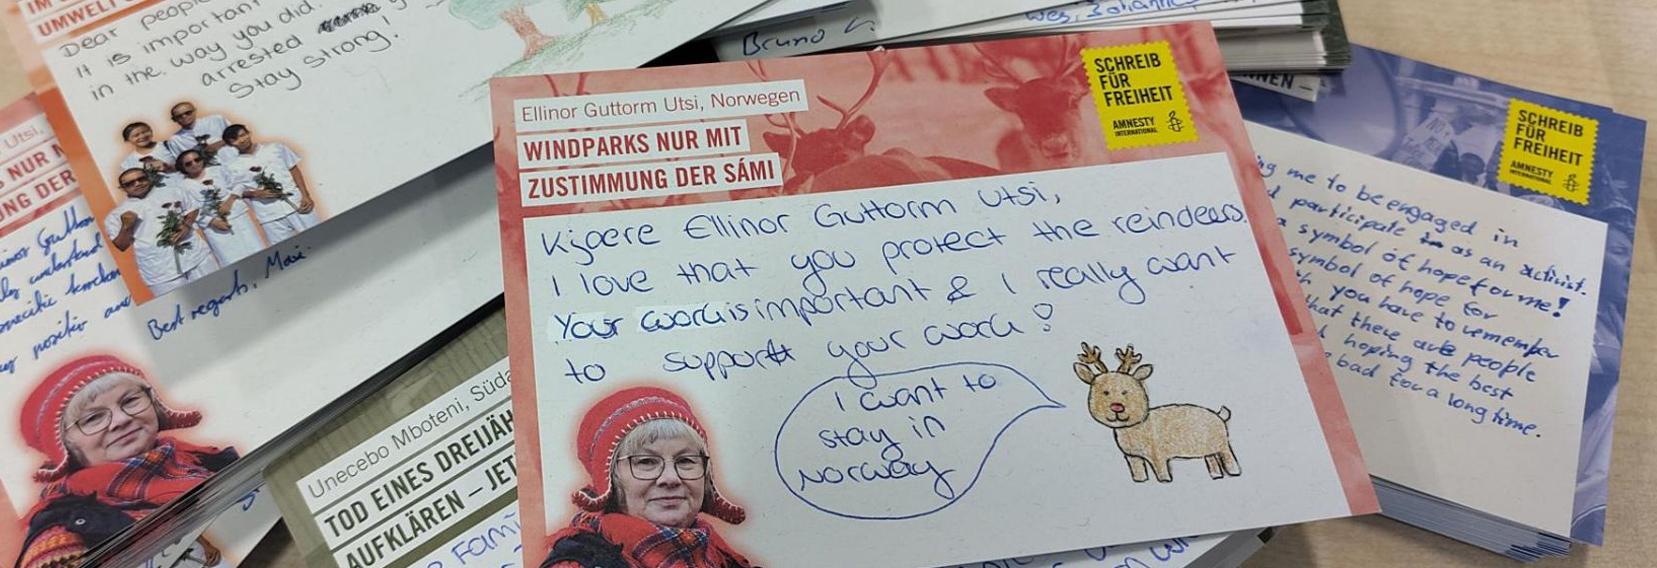 IM
UMWELT
Dear peopl
It is important
in the way you did.
arrested
Stay strong!
Best regards,
Bruno
Utsi,
S NUR
NG DER
positiv
Unecebo Mboteni, Süda
TOD EINES DREIJÄH
AUFKLÄREN – JET
Fami
Ellinor Guttorm Utsi, Norwegen
WINDPARKS NUR MIT
ZUSTIMMUNG DER SÁMI
SCHREIB
FÜR
FREIHEIT
AMNESTY
INTERNATIONAL
Kjaere Ellinor Guttorm Utsi,
I love that you protect the reindeers.
Your work is important & I really want
to support your work!
I want to
stay in
Norway
NEN –
SCHREIB
FÜR
FREIHEIT
AMNESTY
INTERNATIONAL
ng me to be engaged in
participate as an activist.
a symbol of hope for me!
symbol of hope for
you have to remember
that there are people
hoping the best
bad for a long time.